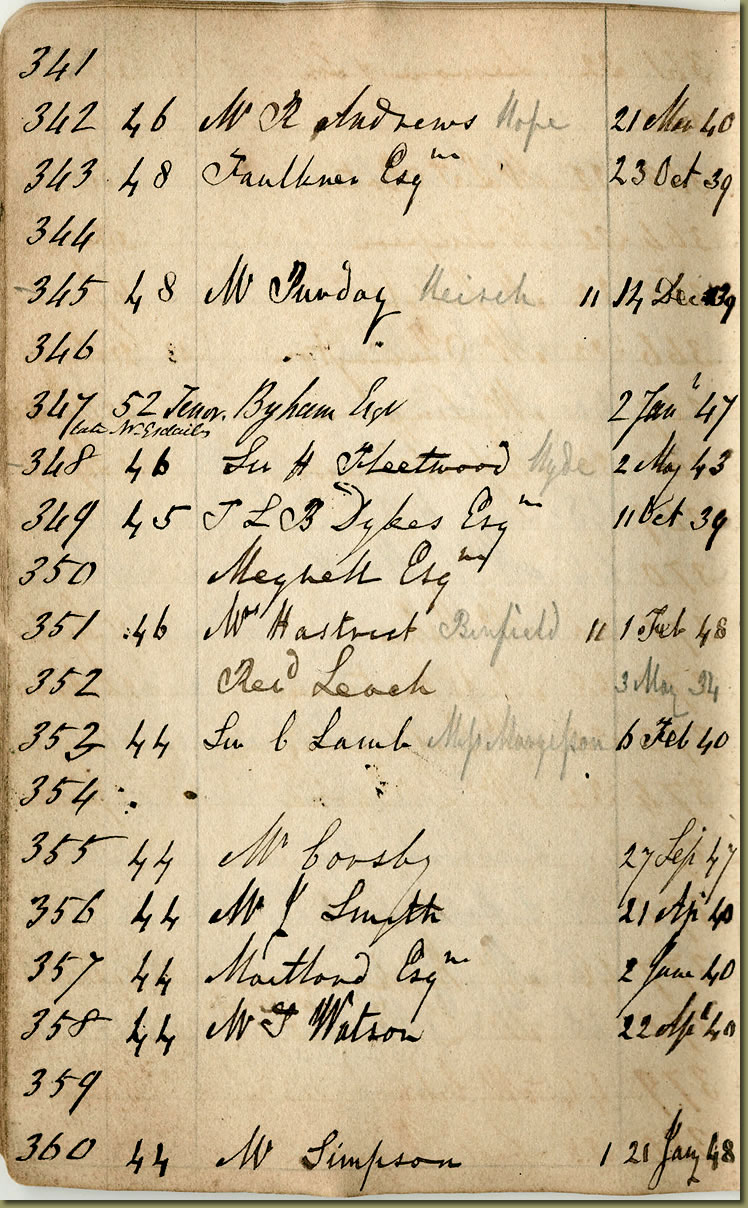 341
342 46 Mr R Andrews Hope 21 Mar 40
343 48 Faulkner Esqre 23 Oct 39
344
345 48 Mr Purday Heisch 11 14 Dec 39
346
347 52 Tenor. Byham Esqr 2 Janr 47
late Mr Esdailes
348 46 Sir H Fleetwood Hyde 2 May 43
349 45 T L B Dykes Esqre 11 Oct 39
350 Meynell Esqre
351 46 Mrs Hastrick Binfield 11 1 Feb 48
352 Revd Leach 3 May 34
353 44 Sir C Lamb Miss Margesson 6 Feb 40
354
355 44 Mr Corsby 27 Sep 47
356 44 Mr J Smyth 21 Ap 40
357 44 Maitland Esqre 2 June 40
358 44 Mr T Watson 22 Apl 40
359
360 44 Mr Simpson 1 21 Jany 48